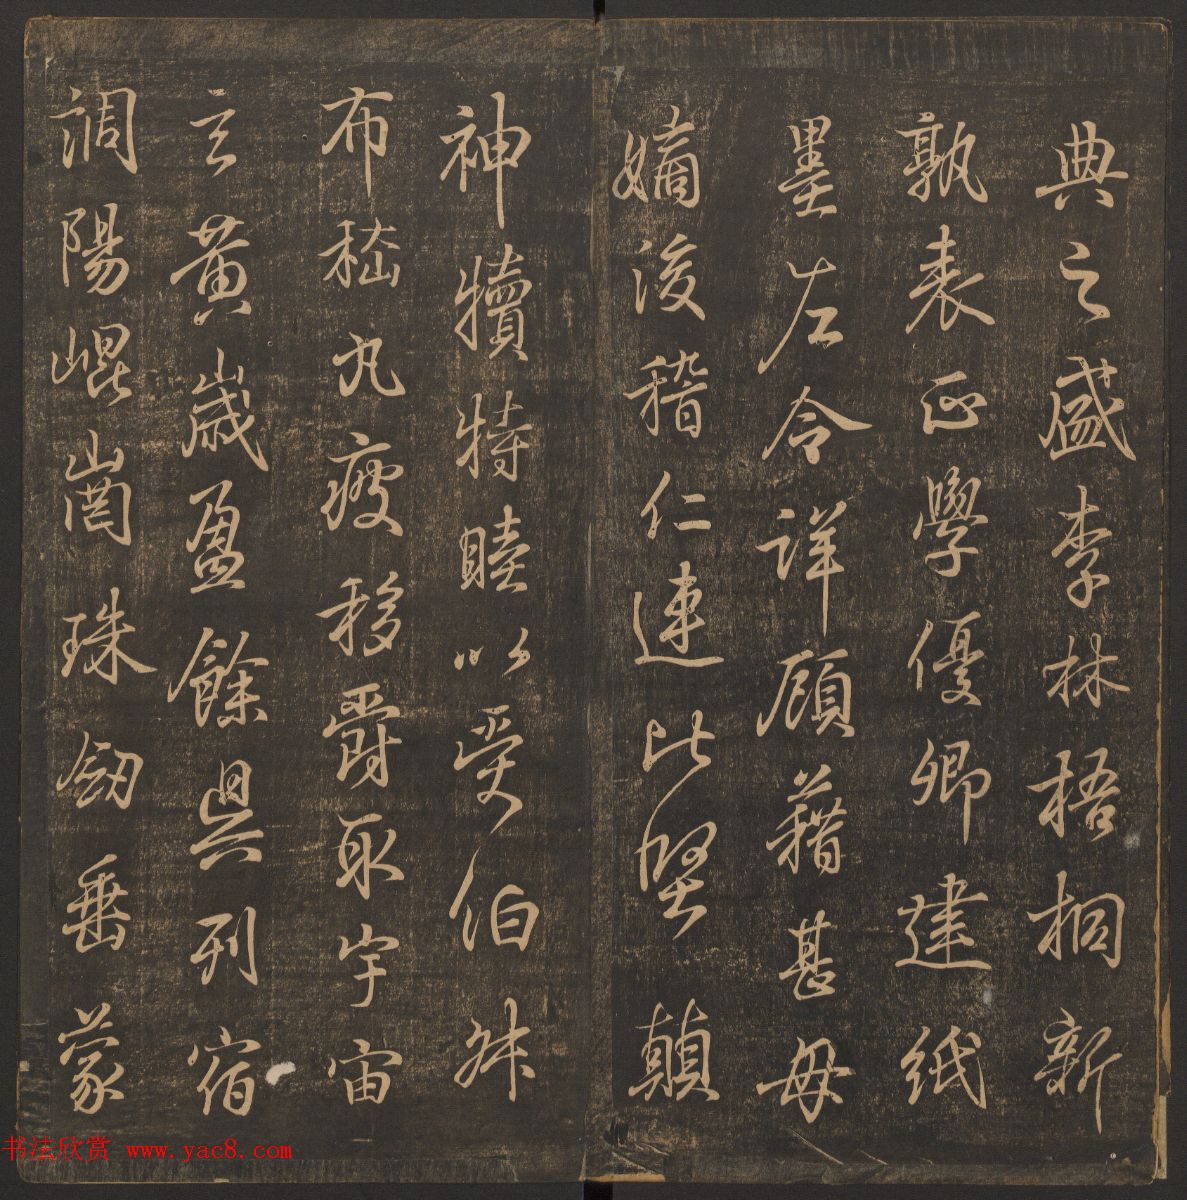 典之盛李林梧桐新
孰表正學優卿建紙
墨左令詳顧藉甚毋
嫡後稽仁連此堅顛
神犢特睦以受伯叔
布嵇丸疲移爵取宇宙
玄黃歲盈餘具列宿
調陽崐崗珠劒垂蒙
书法欣赏 www.yac8.com